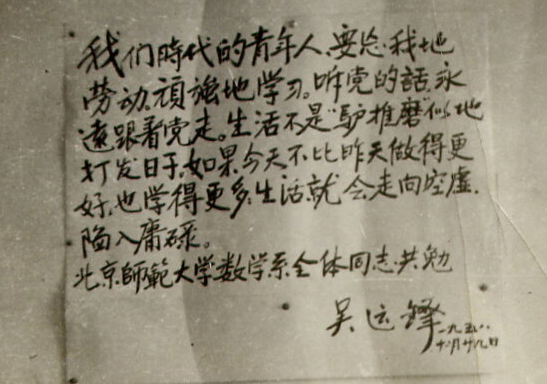 我们時代的青年人,要忘我地
劳动,頑強地学习。听党的話,永
遠跟着党走。生活不是“驴推磨”似地
打发日子,如果今天不比昨天做得更
好,也学得更多,生活就会走向空虚,
陷入庸碌。
北京師範大学数学系全体同志共勉
吴运鐸
一九五八
十月廿九日